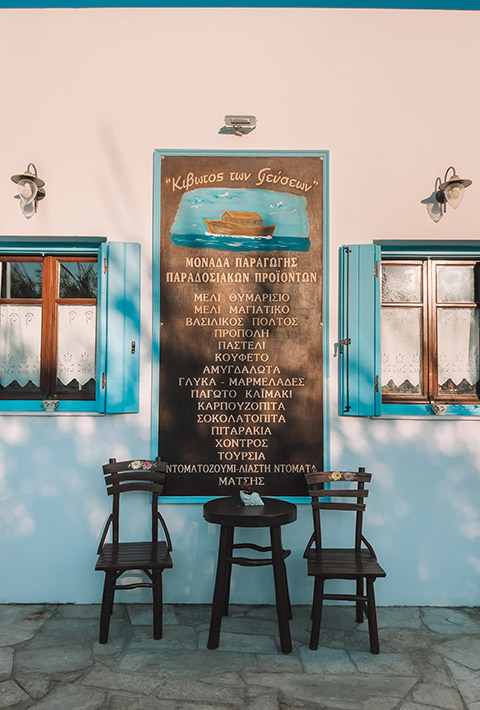 "Κιβωτος των Γεύσεων"
ΜΟΝΑΔΑ ΠΑΡΑΓΩΓΗΣ
ΠΑΡΑΔΟΣΙΑΚΩΝ ΠΡΟΪΟΝΤΩΝ
ΜΕΛΙ ΘΥΜΑΡΙΣΙΟ
ΜΕΛΙ ΜΑΓΙΑΤΙΚΟ
ΒΑΣΙΛΙΚΟΣ ΠΟΛΤΟΣ
ΠΡΟΠΟΛΗ
ΠΑΣΤΕΛΙ
ΚΟΥΦΕΤΟ
ΑΜΥΓΔΑΛΩΤΑ
ΓΛΥΚΑ - ΜΑΡΜΕΛΑΔΕΣ
ΠΑΓΩΤΟ ΚΑΪΜΑΚΙ
ΚΑΡΠΟΥΖΟΠΙΤΑ
ΣΟΚΟΛΑΤΟΠΙΤΑ
ΠΙΤΑΡΑΚΙΑ
ΧΟΝΤΡΟΣ
ΤΟΥΡΣΙΑ
ΝΤΟΜΑΤΟΖΟΥΜΙ-ΛΙΑΣΤΗ ΝΤΟΜΑΤΑ
ΜΑΤΣΗΣ